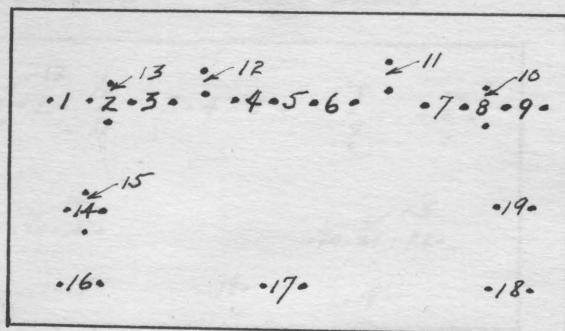 13 12 11 10
1 2 3 4 5 6 7 8 9
15
14 19
16 17 18